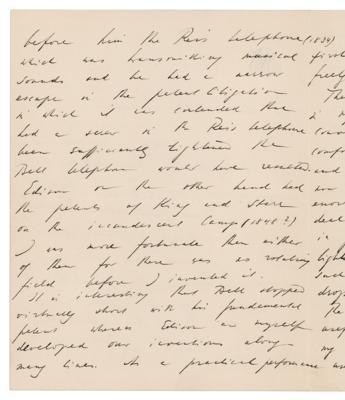 before him the Reis telephone (1834)
which was transmitting musical first
sounds and he had a narrow freely
escape in the patent litigation The
in which it was contended that in
had a screw in the Reis telephone
been sufficiently tightened the
Bell telephone would have resulted. and
Edison on the other hand had
the patents of King and Starr
on the incandescent lamps (1848?) deal
I was more fortunate than either is
of them for there was no rotating light
field before I invented it. Such
It is interesting that Bell stopped drop
virtually short with his fundamental The
patent whereas Edison and myself
developed our inventions along my
many lines. As a practical performance